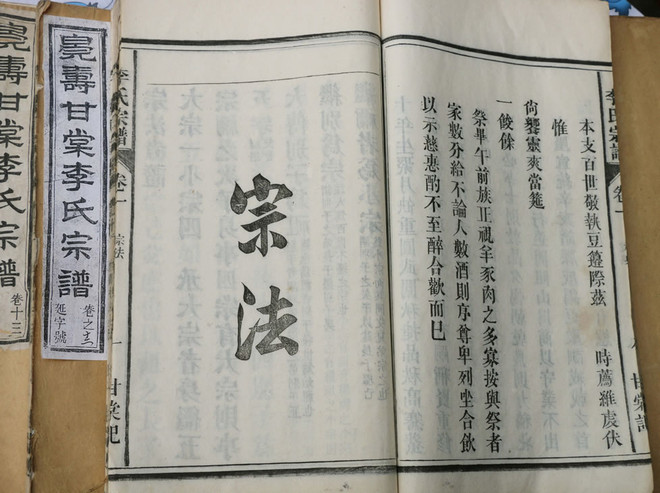 李氏宗譜 卷一 甘棠記
本支百世敬執豆籩際茲 時薦維虔伏
惟
尙饗靈爽當筵
一餕餘
祭畢午前族正視羊豕肉之多寡按與祭者
家數分給不論人數酒則序尊卑列坐合飮
以示慈惠酌不至醉合歡而已
宗法
李氏宗譜 卷一 宗法 一 甘棠記
壽甘棠李氏宗譜
卷之
延字號
壽甘棠李氏宗譜
卷十三